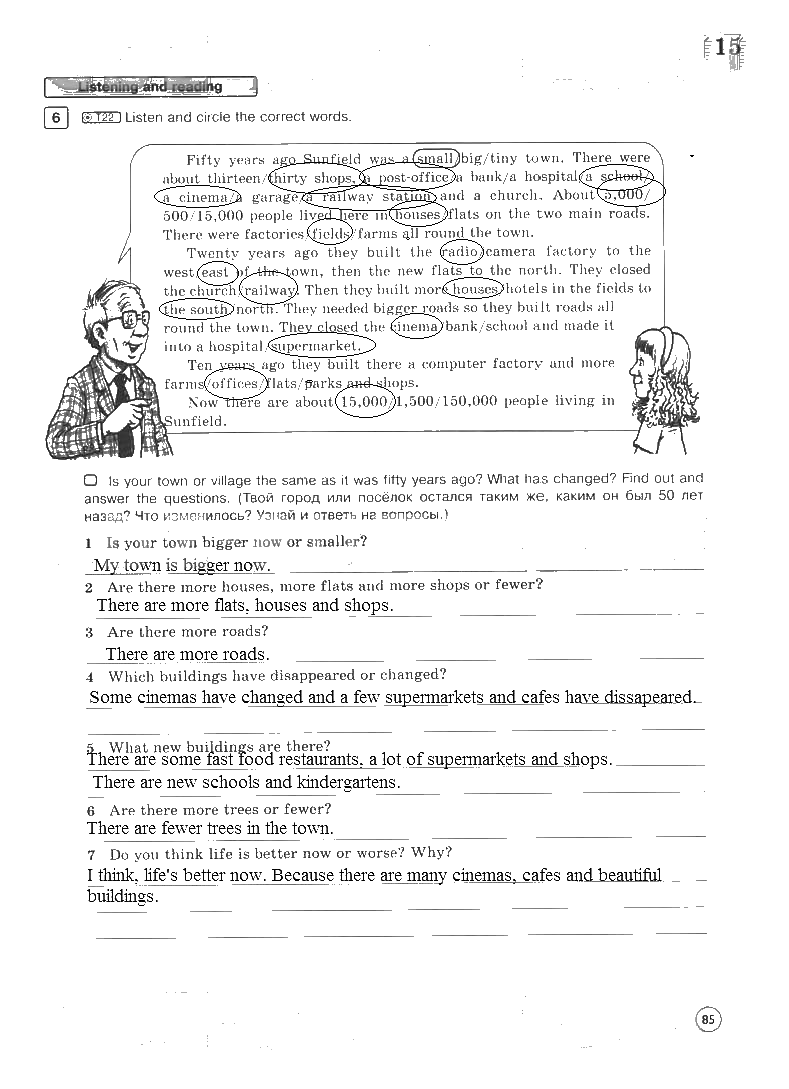 15
Listening and reading
6 T22 Listen and circle the correct words.
Fifty years ago Sunfield was a small/big/tiny town. There were
about thirteen/thirty shops, a post-office/a bank/a hospital/a school/
a cinema/a garage/a railway station and a church. About 5,000/
500/15,000 people lived here in houses/flats on the two main roads.
There were factories/fields/farms all round the town.
Twenty years ago they built the radio/camera factory to the
west/east of the town, then the new flats to the north. They closed
the church/railway. Then they built more houses/hotels in the fields to
the south/north. They needed bigger roads so they built roads all
round the town. They closed the cinema/bank/school and made it
into a hospital/supermarket.
Ten years ago they built there a computer factory and more
farms/offices/flats/parks and shops.
Now there are about 15,000/1,500/150,000 people living in
Sunfield.
Is your town or village the same as it was fifty years ago? What has changed? Find out and
answer the questions. (Твой город или посёлок остался таким же, каким он был 50 лет
назад? Что изменилось? Узнай и ответь на вопросы.)
1 Is your town bigger now or smaller?
My town is bigger now.
2 Are there more houses, more flats and more shops or fewer?
There are more flats, houses and shops.
3 Are there more roads?
There are more roads.
4 Which buildings have disappeared or changed?
Some cinemas have changed and a few supermarkets and cafes have dissapeared.
5 What new buildings are there?
There are some fast food restaurants, a lot of supermarkets and shops.
There are new schools and kindergartens.
6 Are there more trees or fewer?
There are fewer trees in the town.
7 Do you think life is better now or worse? Why?
I think, life's better now. Because there are many cinemas, cafes and beautiful
buildings.
85